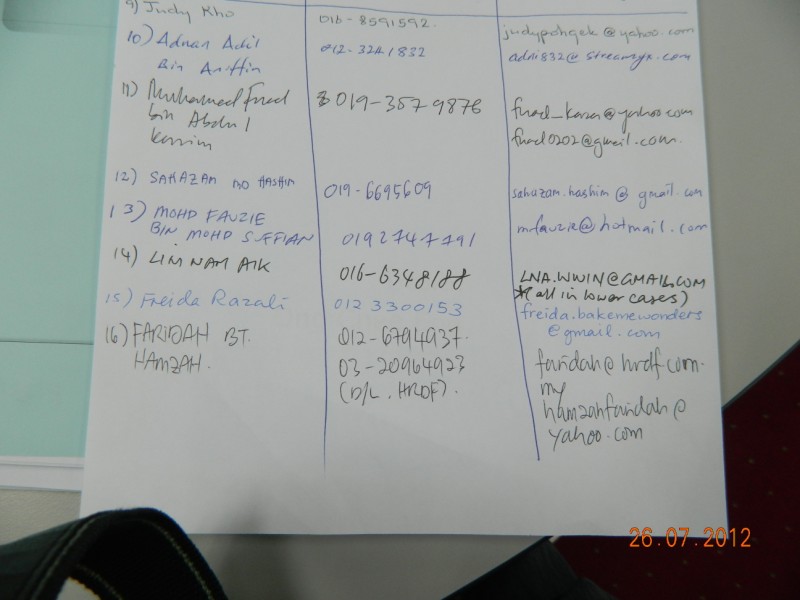 9) Judy Kho 016-8591592. judypohgek@yahoo.com
10) Adnan Adil 012-3241832 adni832@streamyx.com
Bin Ariffin
11) Muhamed Fuad 019-3579876 fuad_karim@yahoo.com
bin Abdul fuad0202@gmail.com.
Karim
12) SAHAZAM MD HASHIM 019-6695609 sahazam.hashim@gmail.com
13) MOHD FAUZIE
BIN MOHD SUFFIAN 0192747791 mfauzie@hotmail.com
14) LIM NAM AIK 016-6348188 LNA.WWIN@GMAIL.COM
*(all in lower cases)
15) Freida Razali 012 3300153 freida.bakemewonders
@gmail.com
16) FARIDAH BT. 012-6794937. faridah@hrdf.com.
HAMZAH. 03-20964923 my
(D/L. HRDF). hamzahfaridah@
yahoo.com
26.07.2012